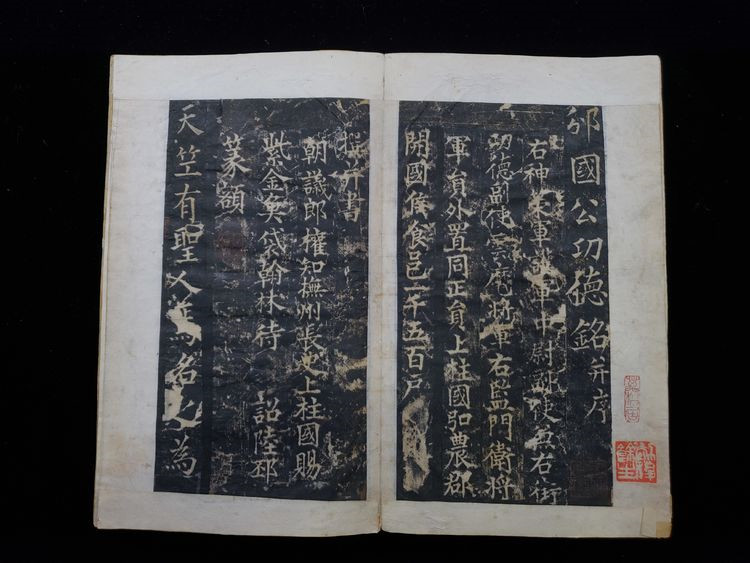 邠國公功德銘并序
右神策軍護軍中尉副使兼右街
功德副使雲麾將軍右監門衛將
軍員外置同正員上柱國弘農郡
開國侯食邑一千五百戶
撰并書
朝議郎權知撫州長史上柱國賜
紫金魚袋翰林待 詔陸邳
篆額
天竺有聖人焉名之為